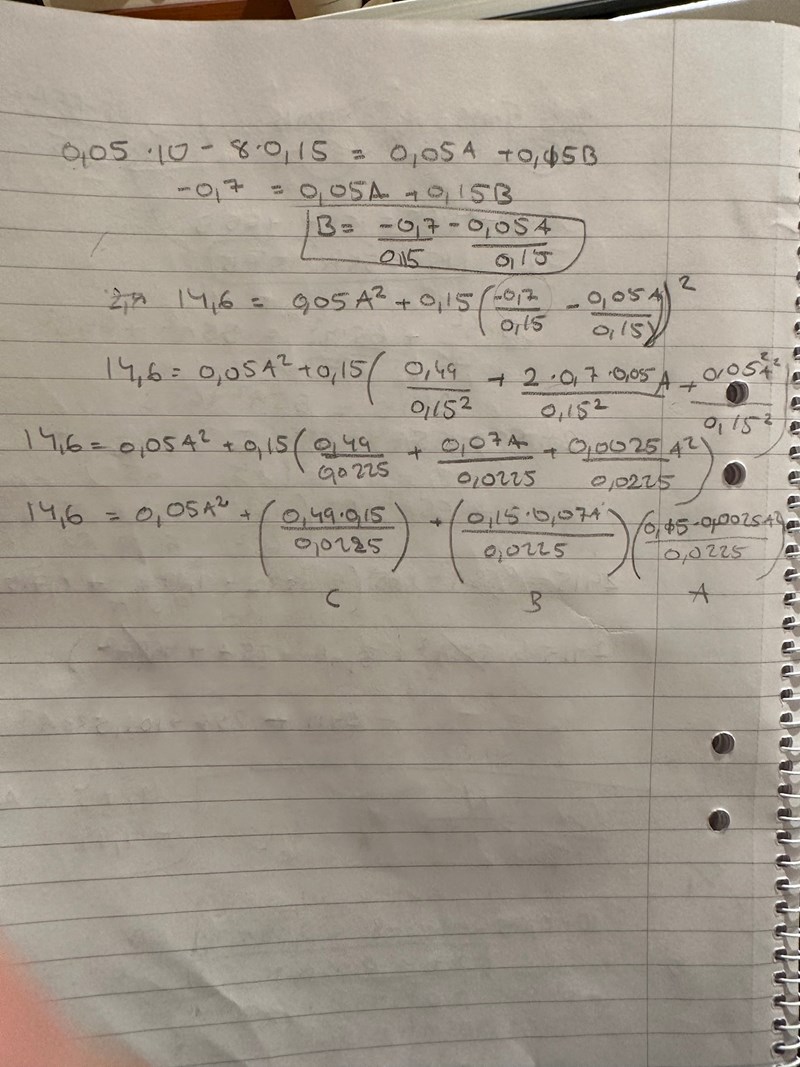 0,05 · 10 - 8 · 0,15 = 0,05A + 0,15B
-0,7 = 0,05A + 0,15B
B = -0,7/0,15 - 0,05A/0,15
14,6 = 0,05A² + 0,15(-0,7/0,15 - 0,05A/0,15)²
14,6 = 0,05A² + 0,15(0,49/0,15² + 2·0,7·0,05A/0,15² + 0,05²A²/0,15²)
14,6 = 0,05A² + 0,15(0,49/0,0225 + 0,07A/0,0225 + 0,0025A²/0,0225)
14,6 = 0,05A² + (0,49·0,15/0,0225) + (0,15·0,07A/0,0225)(0,15·0,0025A²/0,0225)
C B A